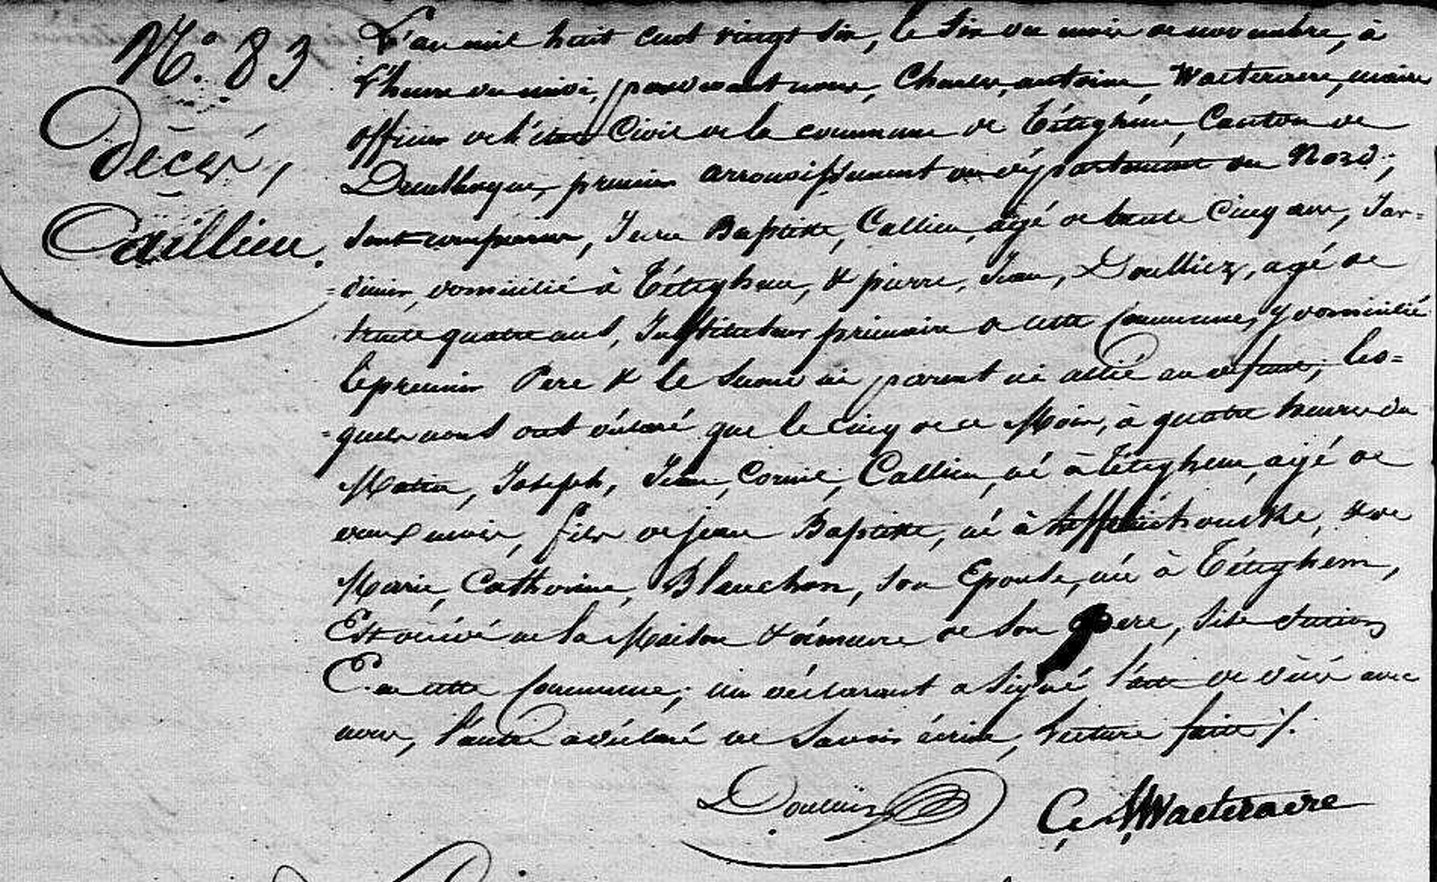 N.° 83
Décès,
Caillieu.
L'an mil huit cent vingt six, le six du mois de novembre, à
l'heure de midi, pardevant nous, Charles, antoine, Waeteraere, maire
officier de l'état Civil de la commune de Téteghem, Canton de
Dunkerque, premier arrondissement du département du Nord;
sont comparus, Jean Baptiste, Callieu, agé de trente Cinq ans, Jar-
=dinier, domicilié à Téteghem, & pierre, Jean, Doulliez, agé de
trente quatre ans, Instituteur primaire de cette Commune, y domicilié
le premier Pere & le second ni parent ni allié au défunt, les-
=quels nous ont déclaré que le cinq de ce Mois, à quatre heures du
Matin, Joseph, Jean, Cornil, Callieu, né à Téteghem, agé de
deux mois, fils de jean Baptiste, né à & de
Marie, Catherine, Blanchon, son Epouse, née à Téteghem,
Est décédé en la Maison & demeure de son pere, sise
En cette Commune; un déclarant a signé l'acte de décès avec
nous, l'autre a déclaré ne savoir écrire, lecture faite /.
Doulliez
C. A. Waeteraere